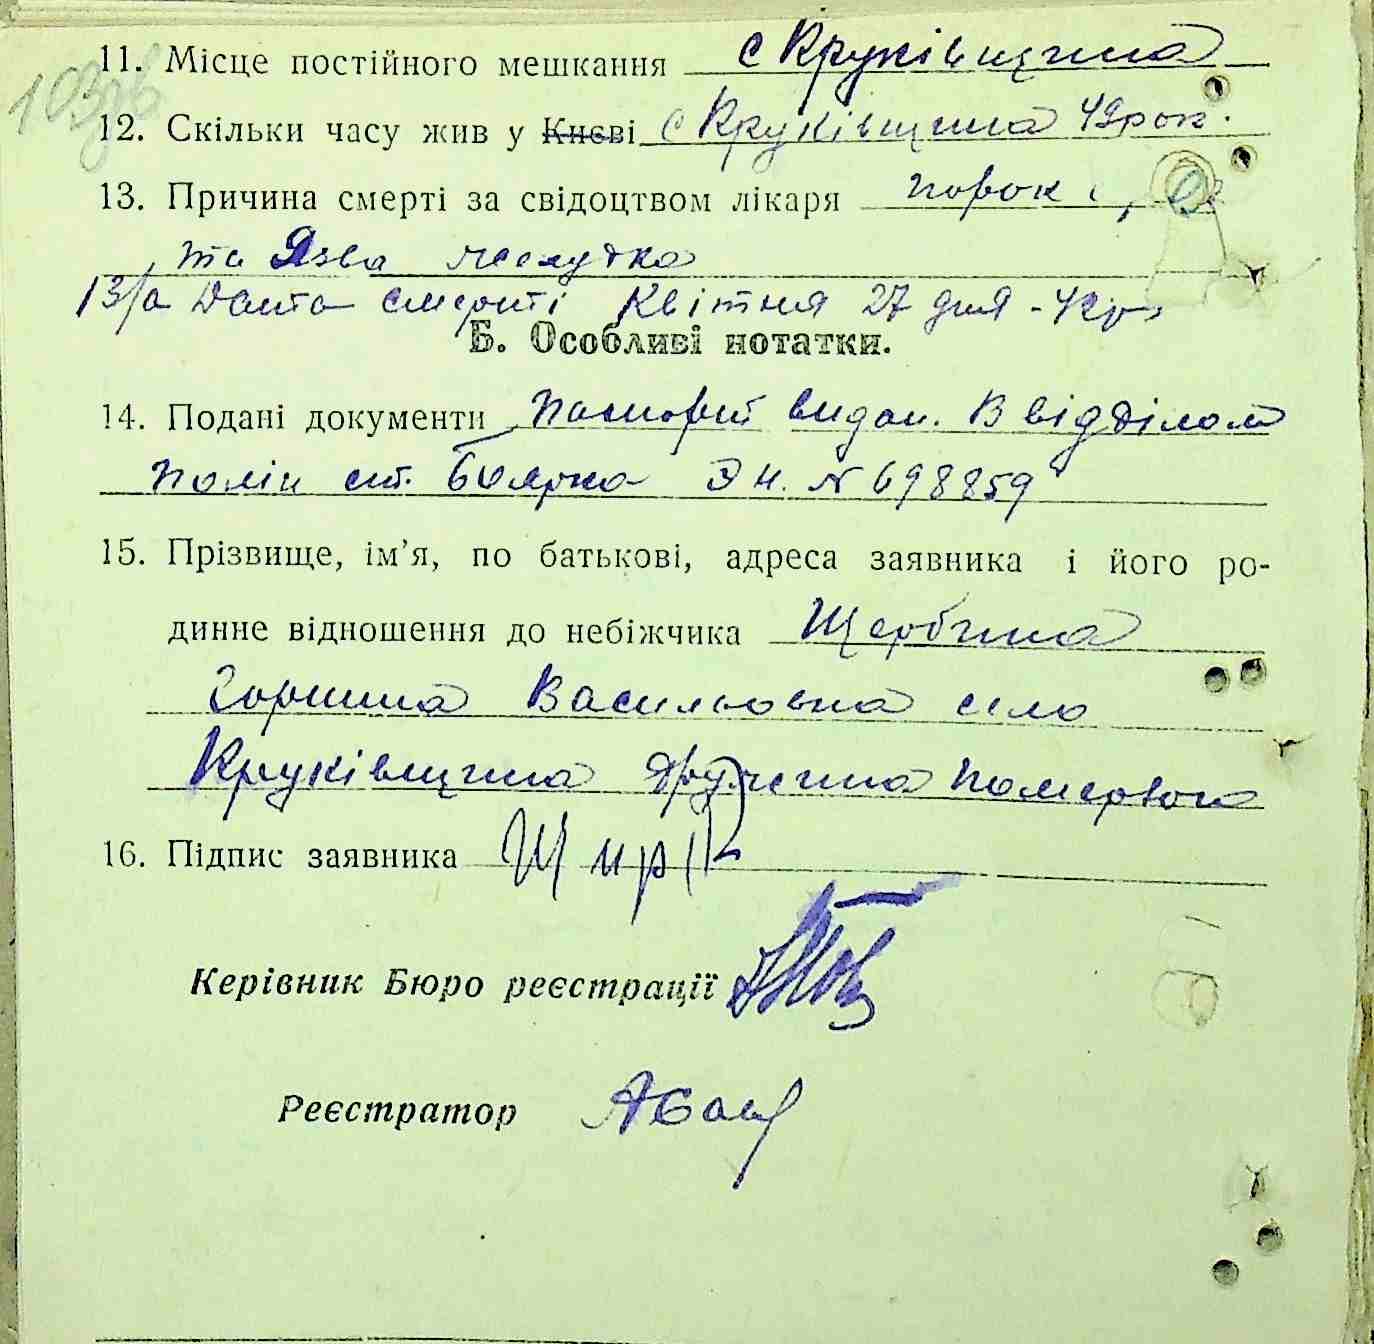 11. Місце постійного мешкання с Круківщина
12. Скільки часу жив у Києві с Круківщина 49 рок.
13. Причина смерті за свідоцтвом лікаря порок
та Язва желудка
13/а Дата смерті Квітня 27 дня - 42 р
Б. Особливі нотатки.
14. Подані документи Паспорт видан. В відділом
поліц ст. Боярка Э Н. № 698859
15. Прізвище, ім’я, по батькові, адреса заявника і його ро-
динне відношення до небіжчика Щербина
Горпина Васильовна село
Круківщина дружина помершого
16. Підпис заявника
Керівник Бюро реєстрації
Реєстратор